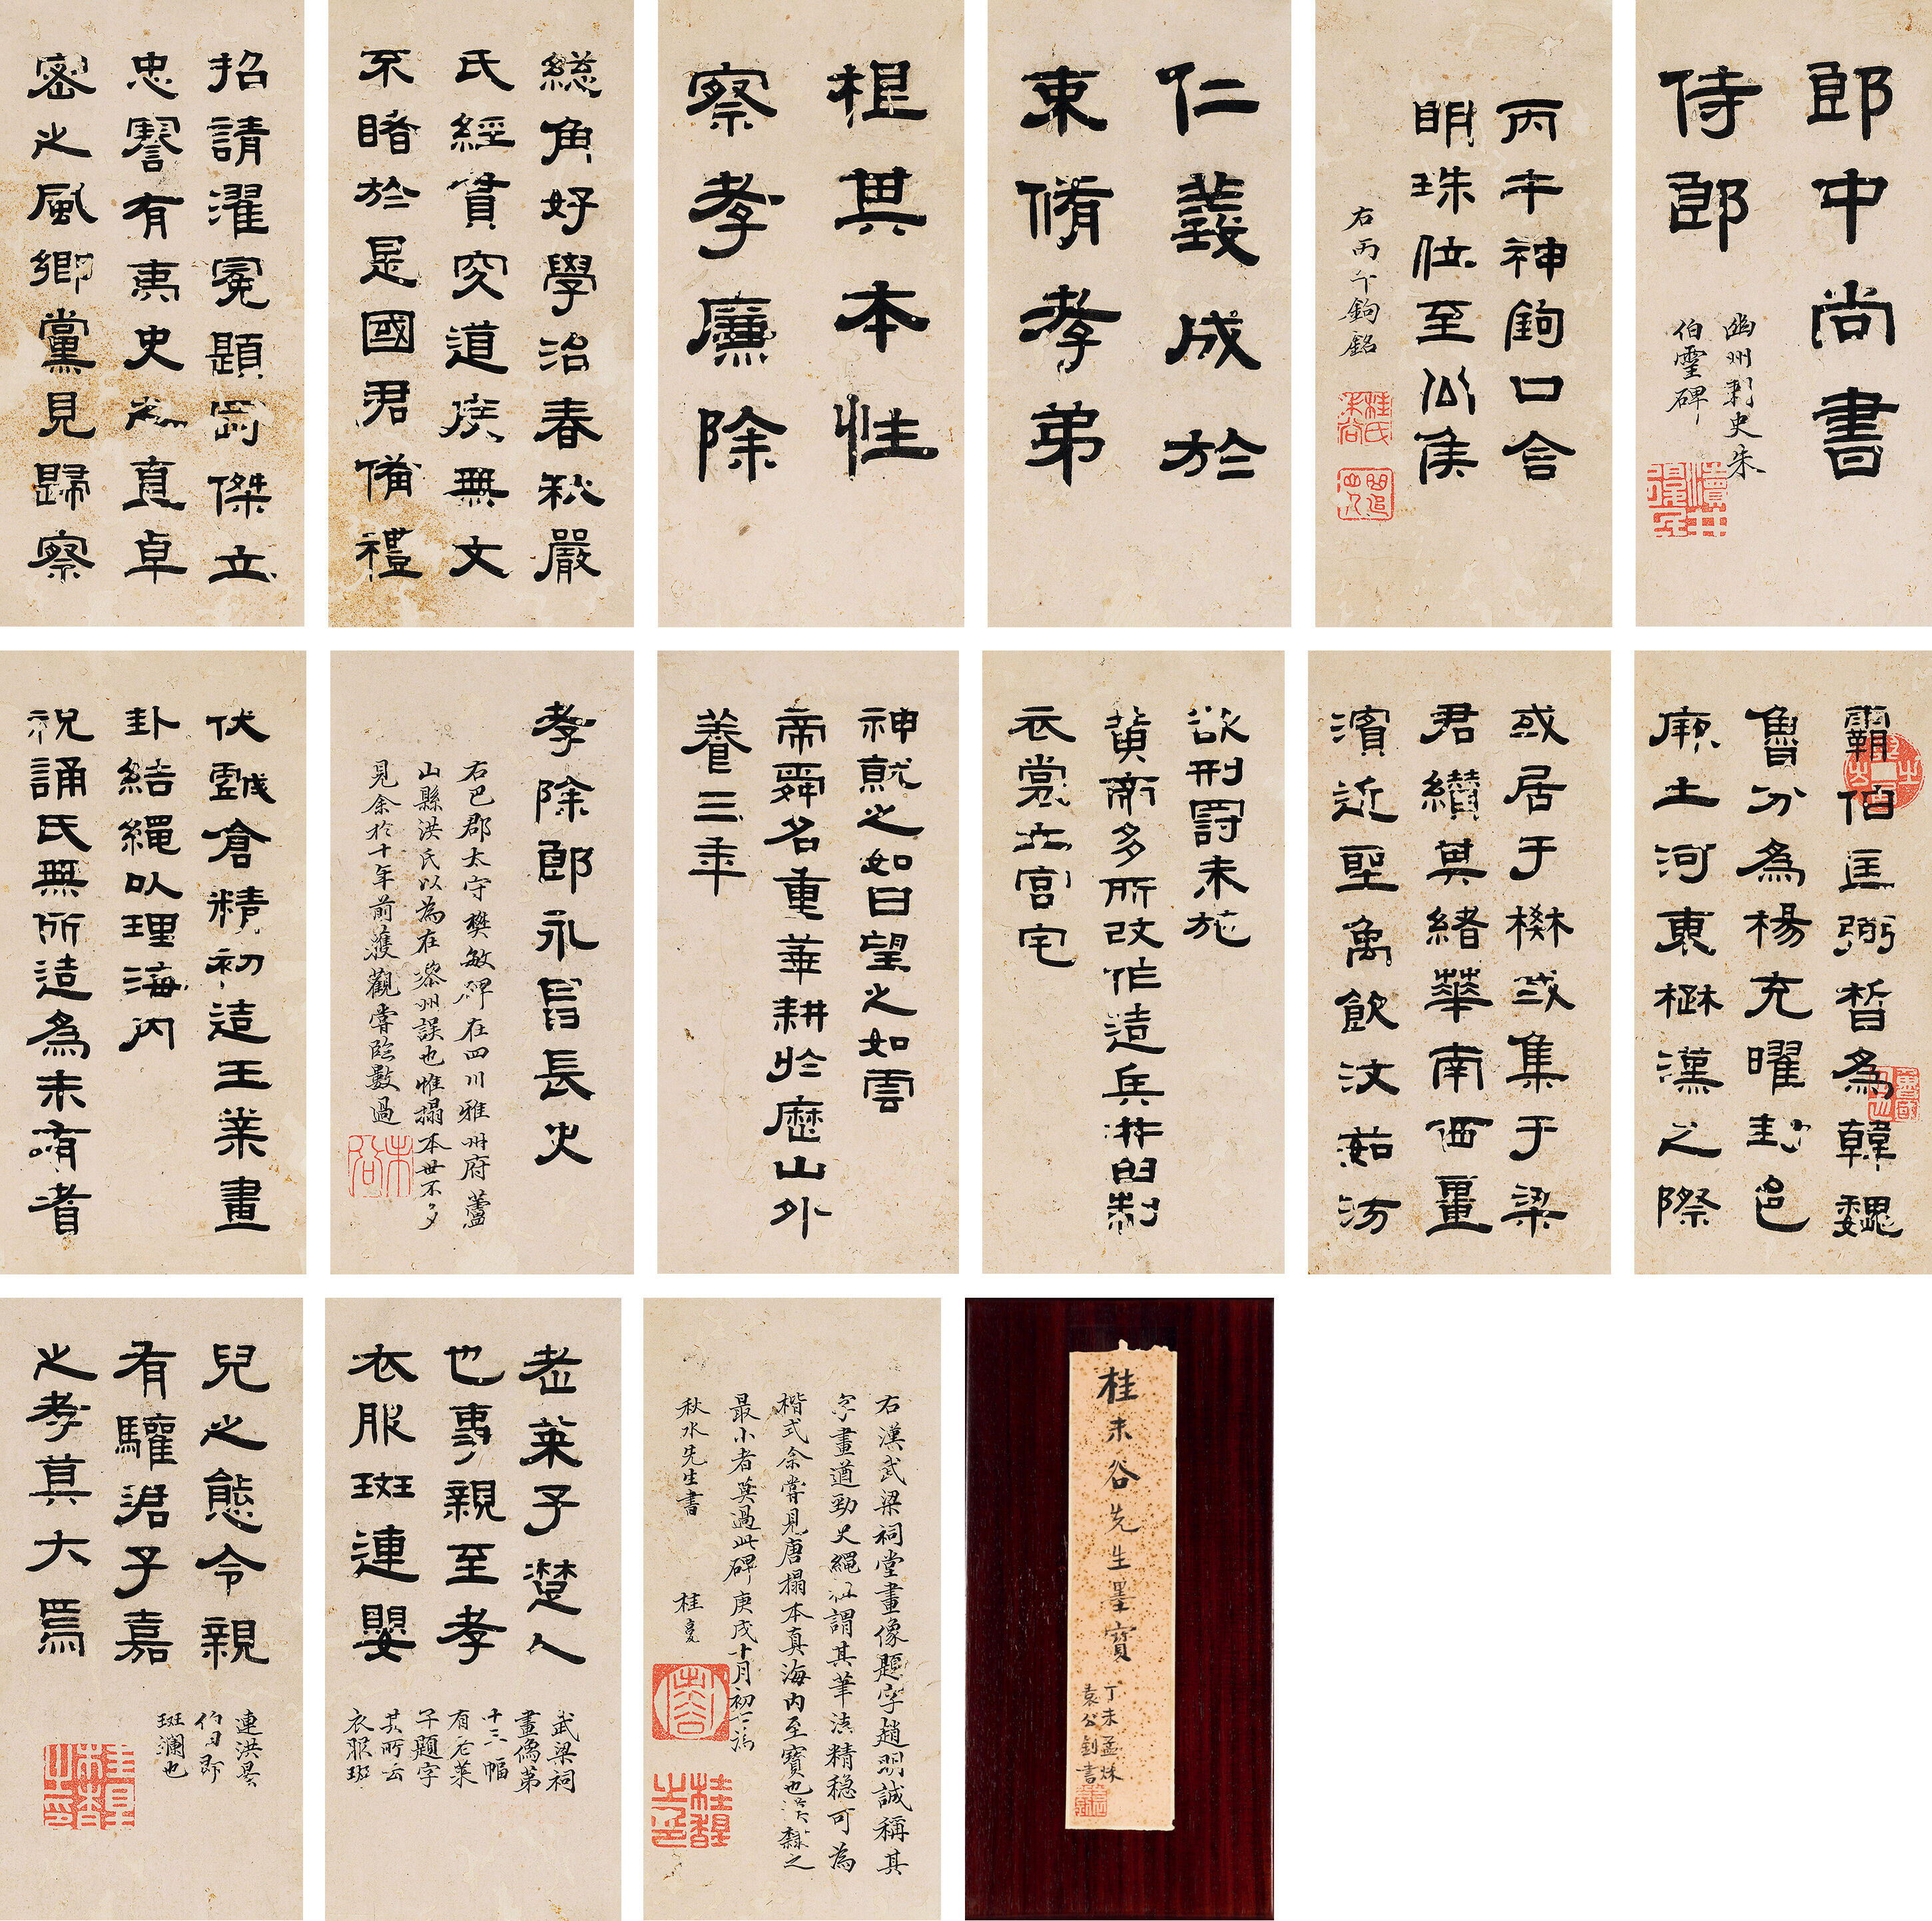 郎中尚書
侍郎
幽州刺史朱
伯靈碑
丙午神鉤口含
明珠位至公侯
右丙午鉤銘
仁義成於
束脩孝弟
根其本性
察孝廉除
總角好學治春秋嚴
氏經貫究道度無文
不睹於是國君備禮
招請濯冕題罔傑立
忠謇有夷史之直卓
密之風鄉黨見歸察
霸伯匡弼晉為韓魏
魯分為楊充曜封邑
厥土河東楙漢之際
或居于楙或集于梁
君纘其緒華南西畺
濱近聖禹飲汶茹汸
欲刑罰未施
黃帝多所改作造兵井臼制
衣裳立宮宅
神就之如日望之如雲
帝舜名重華耕於歷山外
養三年
孝除郎永昌長史
右巴郡太守樊敏碑在四川雅州府蘆
山縣洪氏以為在黎州誤也惟搨本世不多
見余於十年前獲觀嘗臨數過
伏戲倉精初造王業畫
卦結繩以理海內
祝誦氏無所造為未有耆
桂未谷先生墨寶
丁未孟秋
袁公釗書
右漢武梁祠堂畫像題字趙明誠稱其
字畫遒勁史繩祖謂其筆法精穩可為
楷式余嘗見唐搨本真海內至寶也漢隸之
最小者莫過此碑庚戌十月初六為
秋水先生書
桂馥
老萊子楚人
也事親至孝
衣服斑連嬰
武梁祠
畫像第
十三幅
有老萊
子題字
其所云
衣服斑
兒之態令親
有驩君子嘉
之孝莫大焉
連洪景
伯曰即
斑斕也